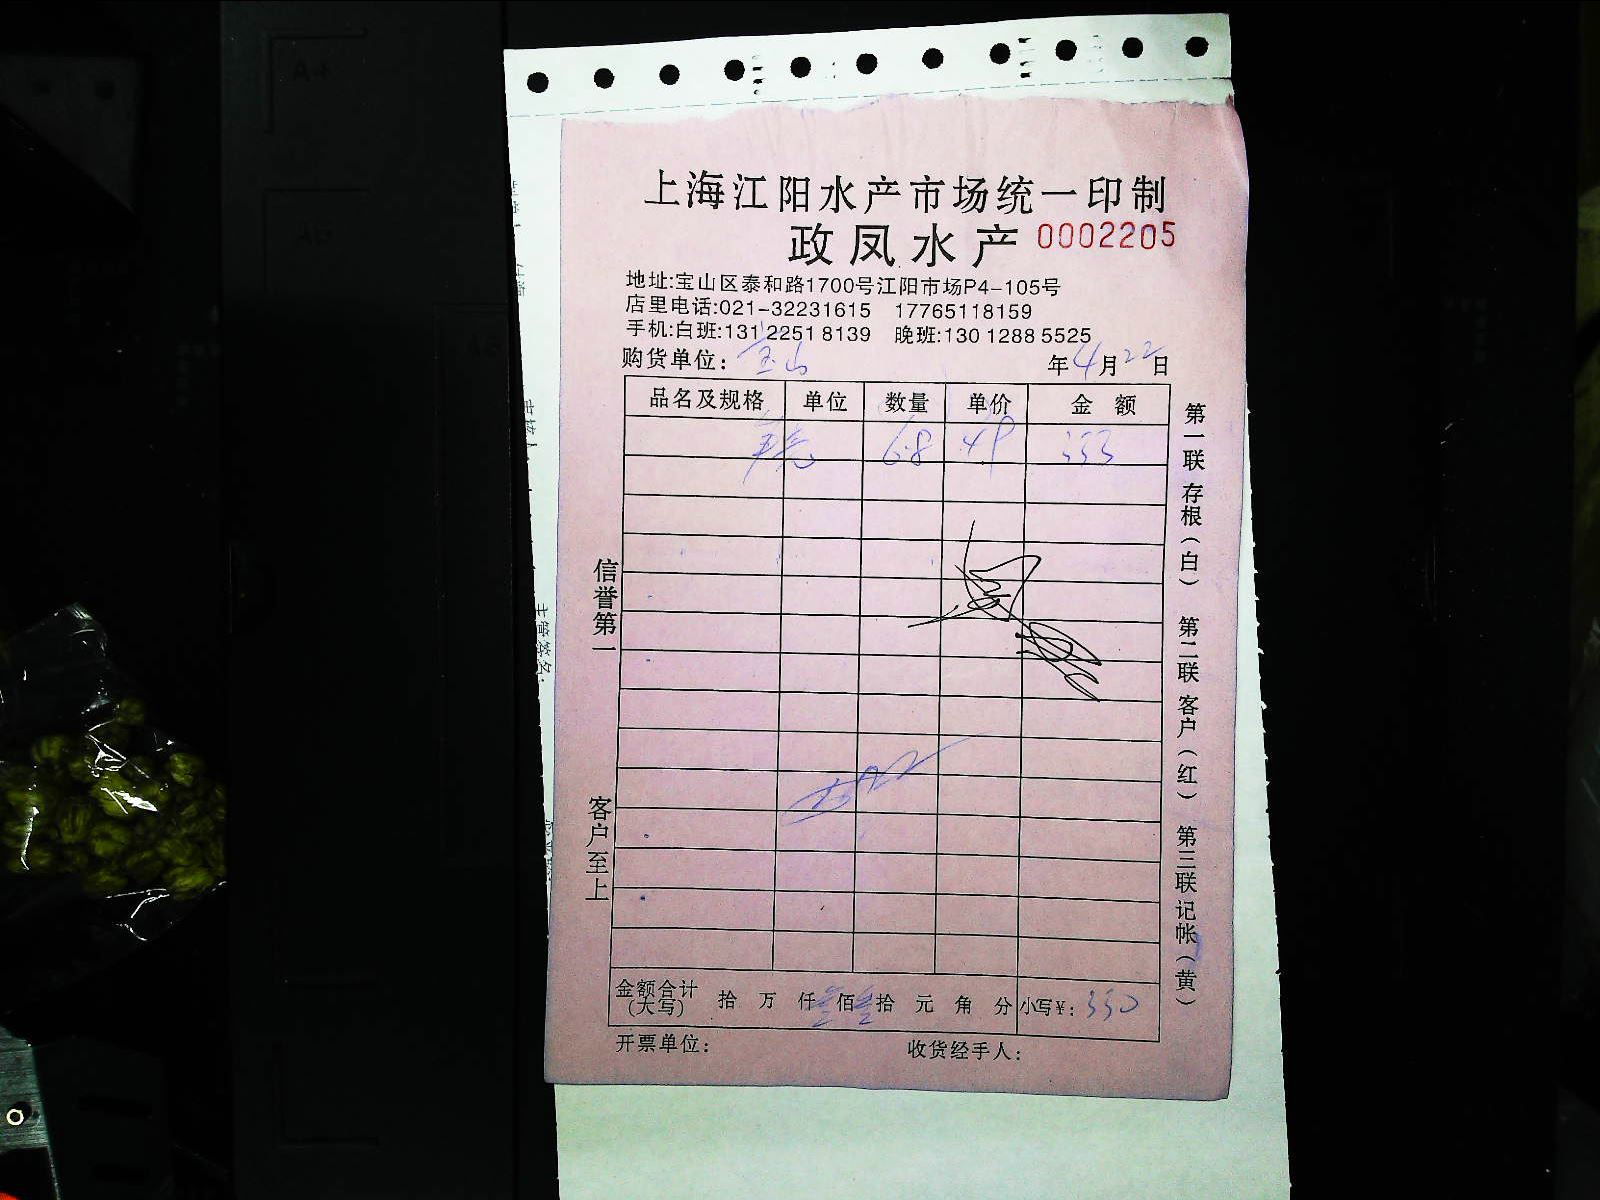 上海江阳水产市场统一印制
政凤水产 0002205
地址:宝山区泰和路1700号江阳市场P4-105号
店里电话:021-32231615 17765118159
手机:白班:131 2251 8139 晚班:130 1288 5525
购货单位: 宝山 年4月22日
品名及规格 单位 数量 单价 金 额
6.8 49 333
信誉第一
客户至上
第一联 存根(白) 第二联 客户(红) 第三联 记帐(黄)
金额合计(大写) 拾 万 仟叁佰叁拾 元 角 分 小写¥: 330
开票单位: 收货经手人: